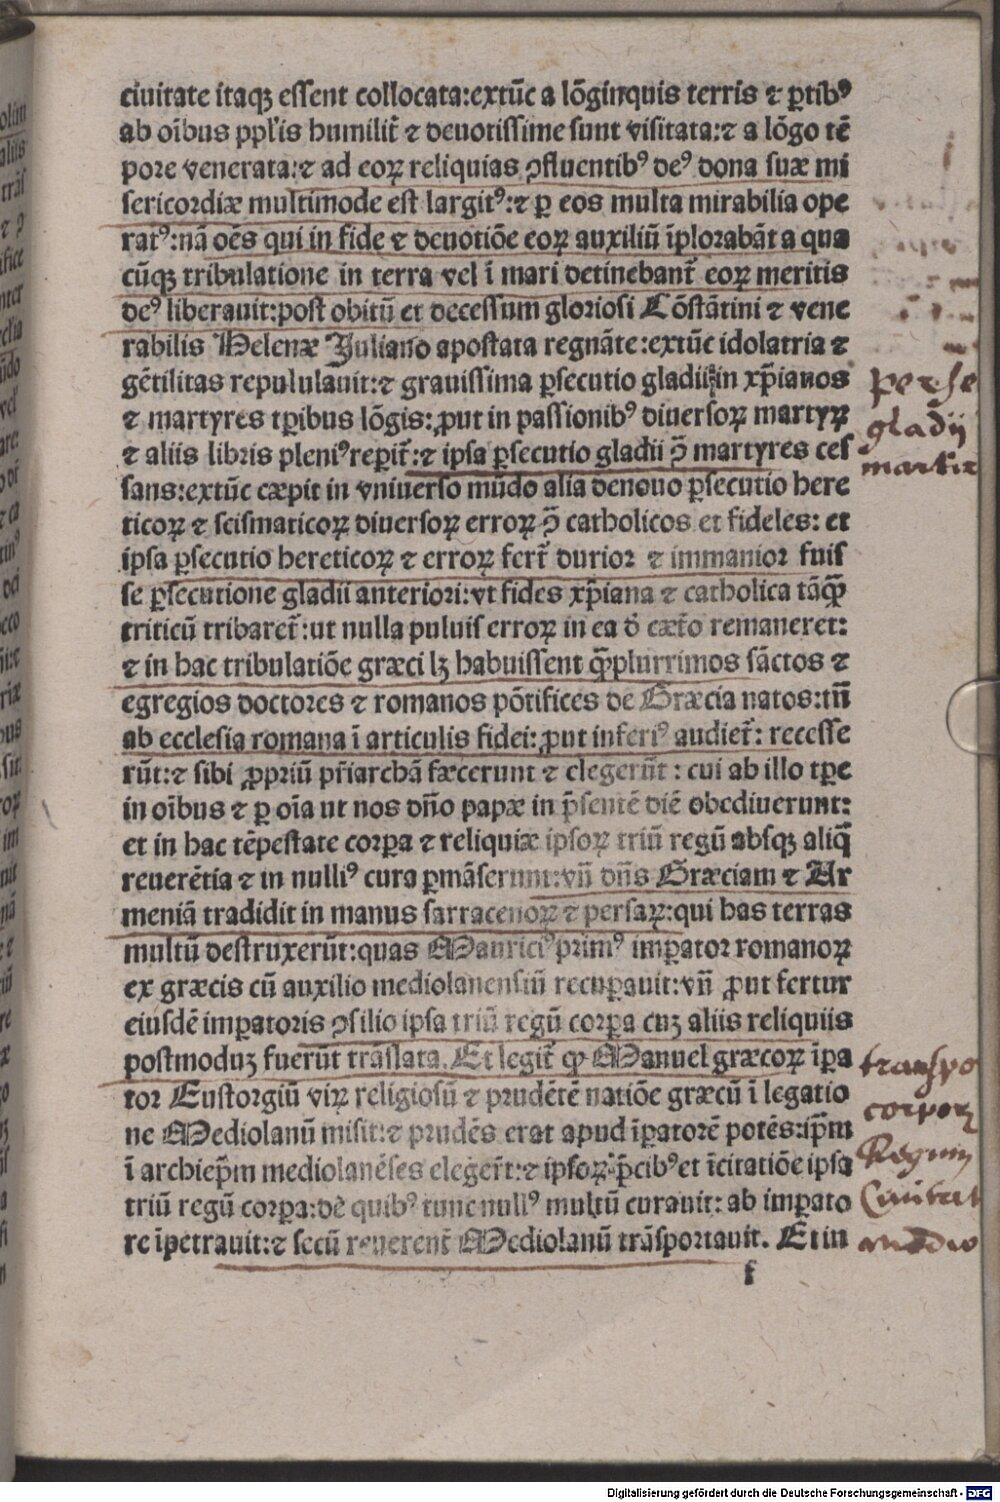 ciuitate itaqꝫ essent collocata:extūc a lōginquis terris ⁊ ꝑtibꝰ
ab oībus ppľis humilit̄ ⁊ deuotissime sunt visitata:⁊ a lōgo tē
pore venerata:⁊ ad eoꝝ reliquias ꝯfluentibꝰ deꝰ dona suæ mi
sericordiæ multimode est largitꝰ:⁊ ꝑ eos multa mirabilia ope
ratꝰ:nā oēs qui in fide ⁊ deuotiōe eoꝝ auxiliū īplorabāt a qua
cūqꝫ tribulatione in terra vel ī mari detinebant̄ eoꝝ meritis
deꝰ liberauit:post obitū et decessum gloriosi Cōstātini ⁊ vene
rabilis Helenæ Juliano apostata regnāte:extūc idolatria ⁊
gētilitas repululauit:⁊ grauissima ꝑsecutio gladii in xp̄ianos
⁊ martyres tꝑibus lōgis:ꝓut in passionibꝰ diuersoꝝ martyꝝ
⁊ aliis libris pleniꝰ reperit̄:⁊ ipsa ꝑsecutio gladii ꝯ̄ martyres ces
sans:extūc cæpit in vniuerso mūdo alia denouo ꝑsecutio here
ticoꝝ ⁊ scismaticoꝝ diuersoꝝ erroꝝ ꝯ̄ catholicos et fideles: et
ipsa ꝑsecutio hereticoꝝ ⁊ erroꝝ fert̄ durior ⁊ immanior fuis
se ꝑsecutione gladii anteriori:vt fides xp̄iana ⁊ catholica tāꝙ̄
triticū tribaret̄:ut nulla puluis erroꝝ in ea đ cæt̄o remaneret:
⁊ in hac tribulatiōe græci lꝫ habuissent ꝙ̄plurrimos sāctos ⁊
egregios doctores ⁊ romanos pōtifices de Græcia natos:tn̄
ab ecclesia romana ī articulis fidei:ꝓut inferiꝰ audiet̄: recesse
rūt:⁊ sibi ꝓpriū pr̄iarchā fæcerunt ⁊ elegerūt : cui ab illo tꝑe
in oībus ⁊ ꝑ oīa ut nos dn̄o papæ in p̄sentē diē obediuerunt:
et in hac tēpestate corꝑa ⁊ reliquiæ ipsoꝝ triū regū absqꝫ aliq̄
reuerētia ⁊ in nulliꝰ cura ꝑmāserunt:vn̄ dn̄s Græciam ⁊ Ar
meniā tradidit in manus sarracenoꝝ ⁊ persaꝝ:qui has terras
multū destruxerūt:quas Mauriciꝰ primꝰ imꝑator romanoꝝ
ex græcis cū auxilio mediolanensiū recuꝑauit:vn̄ ꝓut fertur
eiusdē imꝑatoris ꝯsilio ipsa triū regū corꝑa cuꝫ aliis reliquiis
postmoduꝫ fuerūt trāslata. Et legit̄ ꝙ Manuel græcoꝝ īꝑa
tor Eustorgiū viꝝ religiosū ⁊ prudētē natiōe græcū ī legatio
ne Mediolanū misit:⁊ prudēs erat apud īꝑatorē potēs:ip̄m
ī archiep̄m mediolanēses elegert̄:⁊ ipsoꝝ p̄cibꝰ et īcitatiōe ipsa
triū regū corꝑa:de quibꝰ tunc nullꝰ multū curauit: ab imꝑato
re īpetrauit:⁊ secū reuerent̄ Mediolanū trāsportauit. Et in
f
perse
gladij
martir
transpo
corporꝝ
Regum
Ciuitat
medio
Digitalisierung gefördert durch die Deutsche Forschungsgemeinschaft - DFG